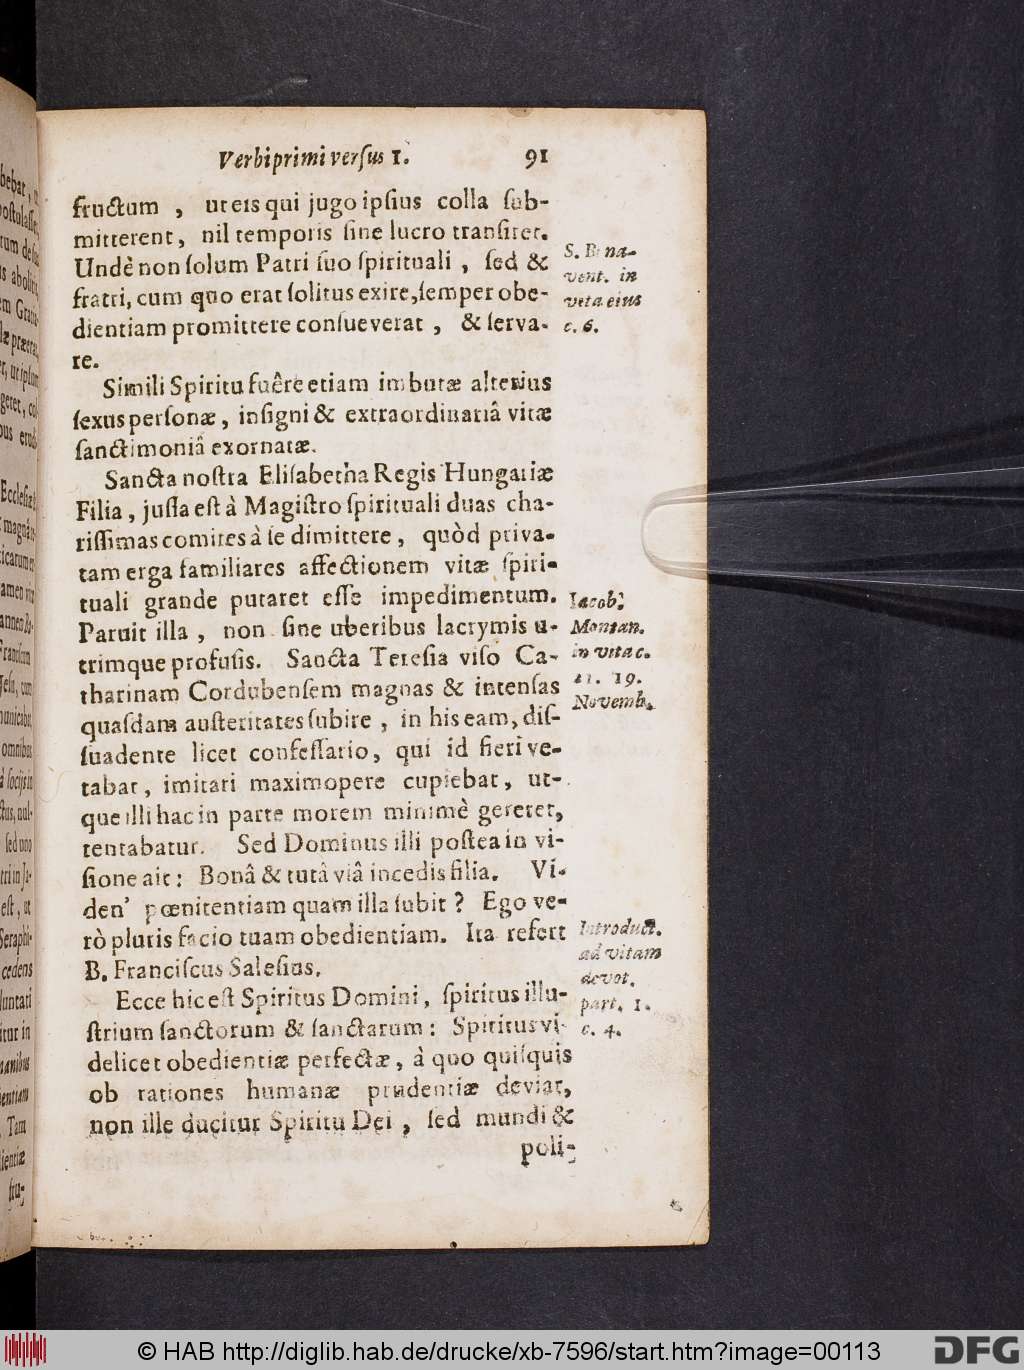 Verbi primi verſus 1. 91
fructum , ut eis qui jugo ipſius colla ſub-
mitterent, nil temporis ſine lucro tranſiret.
Undè non ſolum Patri ſuo ſpirituali , ſed &
fratri, cum quo erat ſolitus exire, ſemper obe-
dientiam promittere conſueverat , & ſerva-
re.
Simili Spiritu fuêre etiam imbutæ alterius
ſexus perſonæ , inſigni & extraordinariâ vitæ
ſanctimoniâ exornatæ.
Sancta noſtra Eliſabetha Regis Hungariæ
Filia , juſſa eſt à Magiſtro ſpirituali duas cha-
riſſimas comites à ſe dimittere , quòd priva-
tam erga familiares affectionem vitæ ſpiri-
tuali grande putaret eſſe impedimentum.
Paruit illa , non ſine uberibus lacrymis u-
trimque profuſis. Sancta Tereſia viſo Ca-
tharinam Cordubenſem magnas & intenſas
quaſdam auſteritates ſubire , in his eam, diſ-
ſuadente licet confeſſario, qui id fieri ve-
tabat, imitari maximopere cupiebat, ut-
que illi hac in parte morem minimè gereret,
tentabatur. Sed Dominus illi poſtea in vi-
ſione ait: Bonâ & tutâ viâ incedis filia. Vi-
den' pœnitentiam quam illa ſubit ? Ego ve-
rò pluris facio tuam obedientiam. Ita refert
B. Franciſcus Saleſius.
Ecce hic eſt Spiritus Domini, ſpiritus illu-
ſtrium ſanctorum & ſanctarum: Spiritus vi-
delicet obedientiæ perfectæ, à quo quiſquis
ob rationes humanæ prudentiæ deviat,
non ille ducitur Spiritu Dei , ſed mundi &
poli-
S. Bonа-
vent. in
vita eius
c. 6.
Iacob.
Montan.
in vita c.
11. 19.
Novemb.
Introduct.
ad vitam
devot.
part. 1.
c. 4.
© HAB http://diglib.hab.de/drucke/xb-7596/start.htm?image=00113
DFG